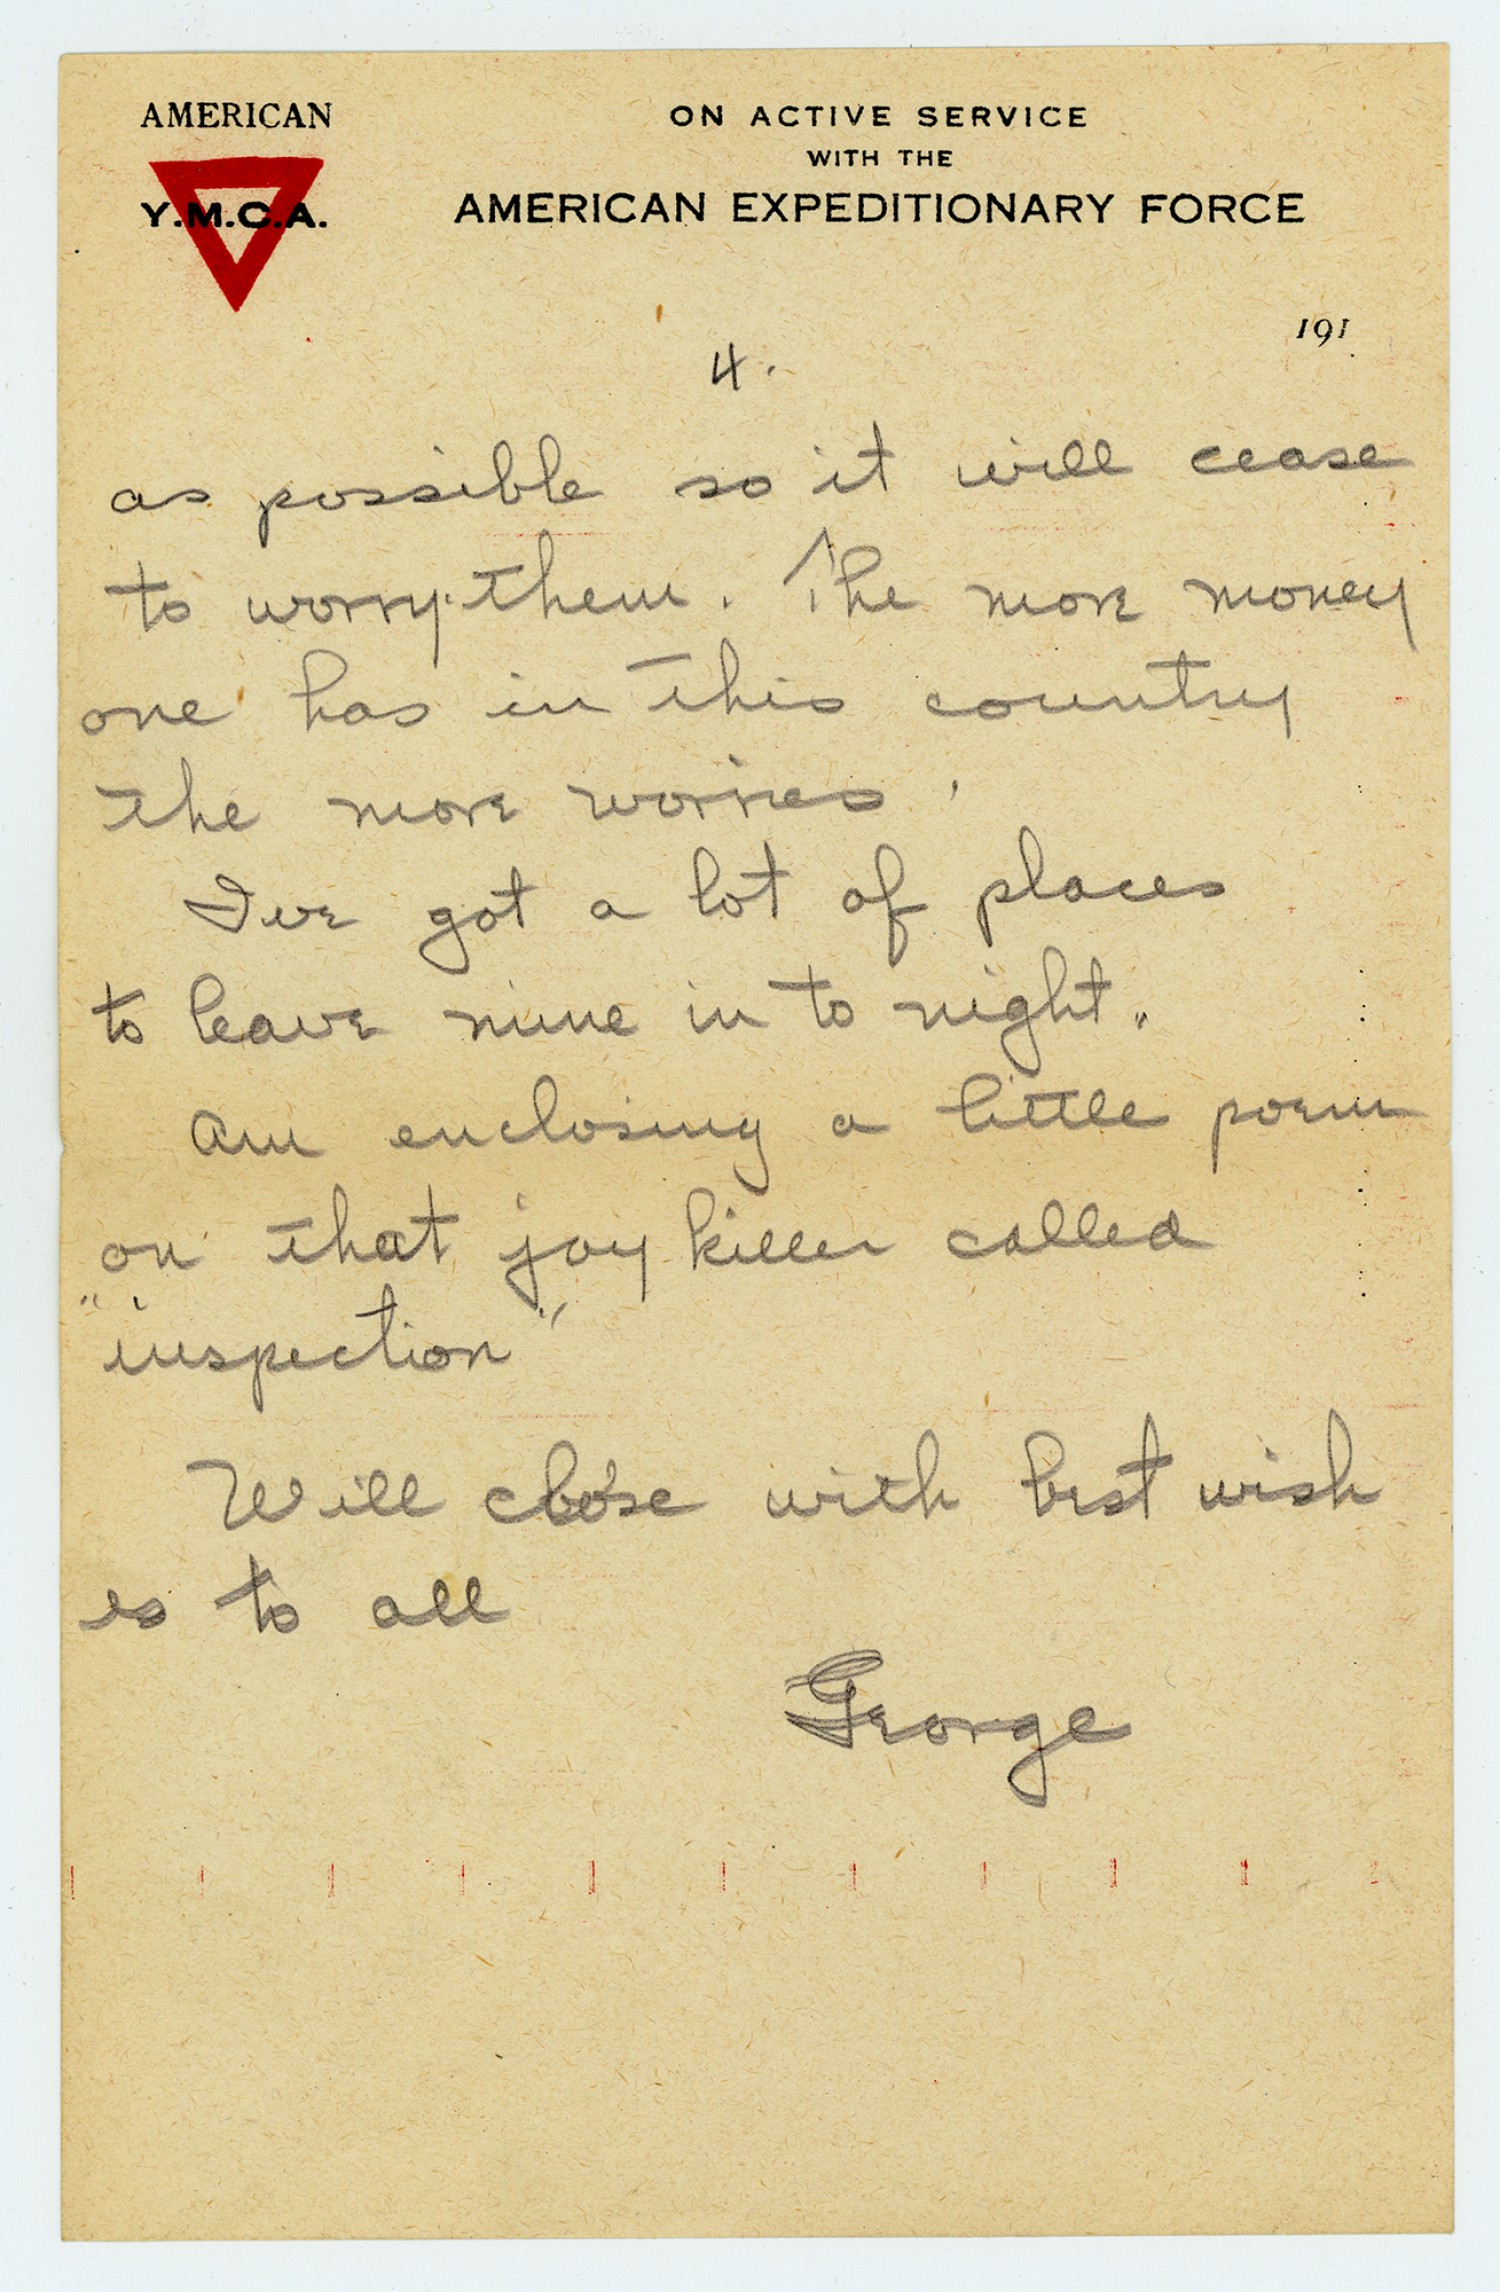 AMERICAN
Y.M.C.A.
ON ACTIVE SERVICE
WITH THE
AMERICAN EXPEDITIONARY FORCE
191
4.
as possible so it will cease
to worry them. The more money
one has in this country
the more worries.
I've got a lot of places
to leave mine in to night.
Am enclosing a little poem
on that joy killer called
"inspection"
Will close with best wish
es to all
George